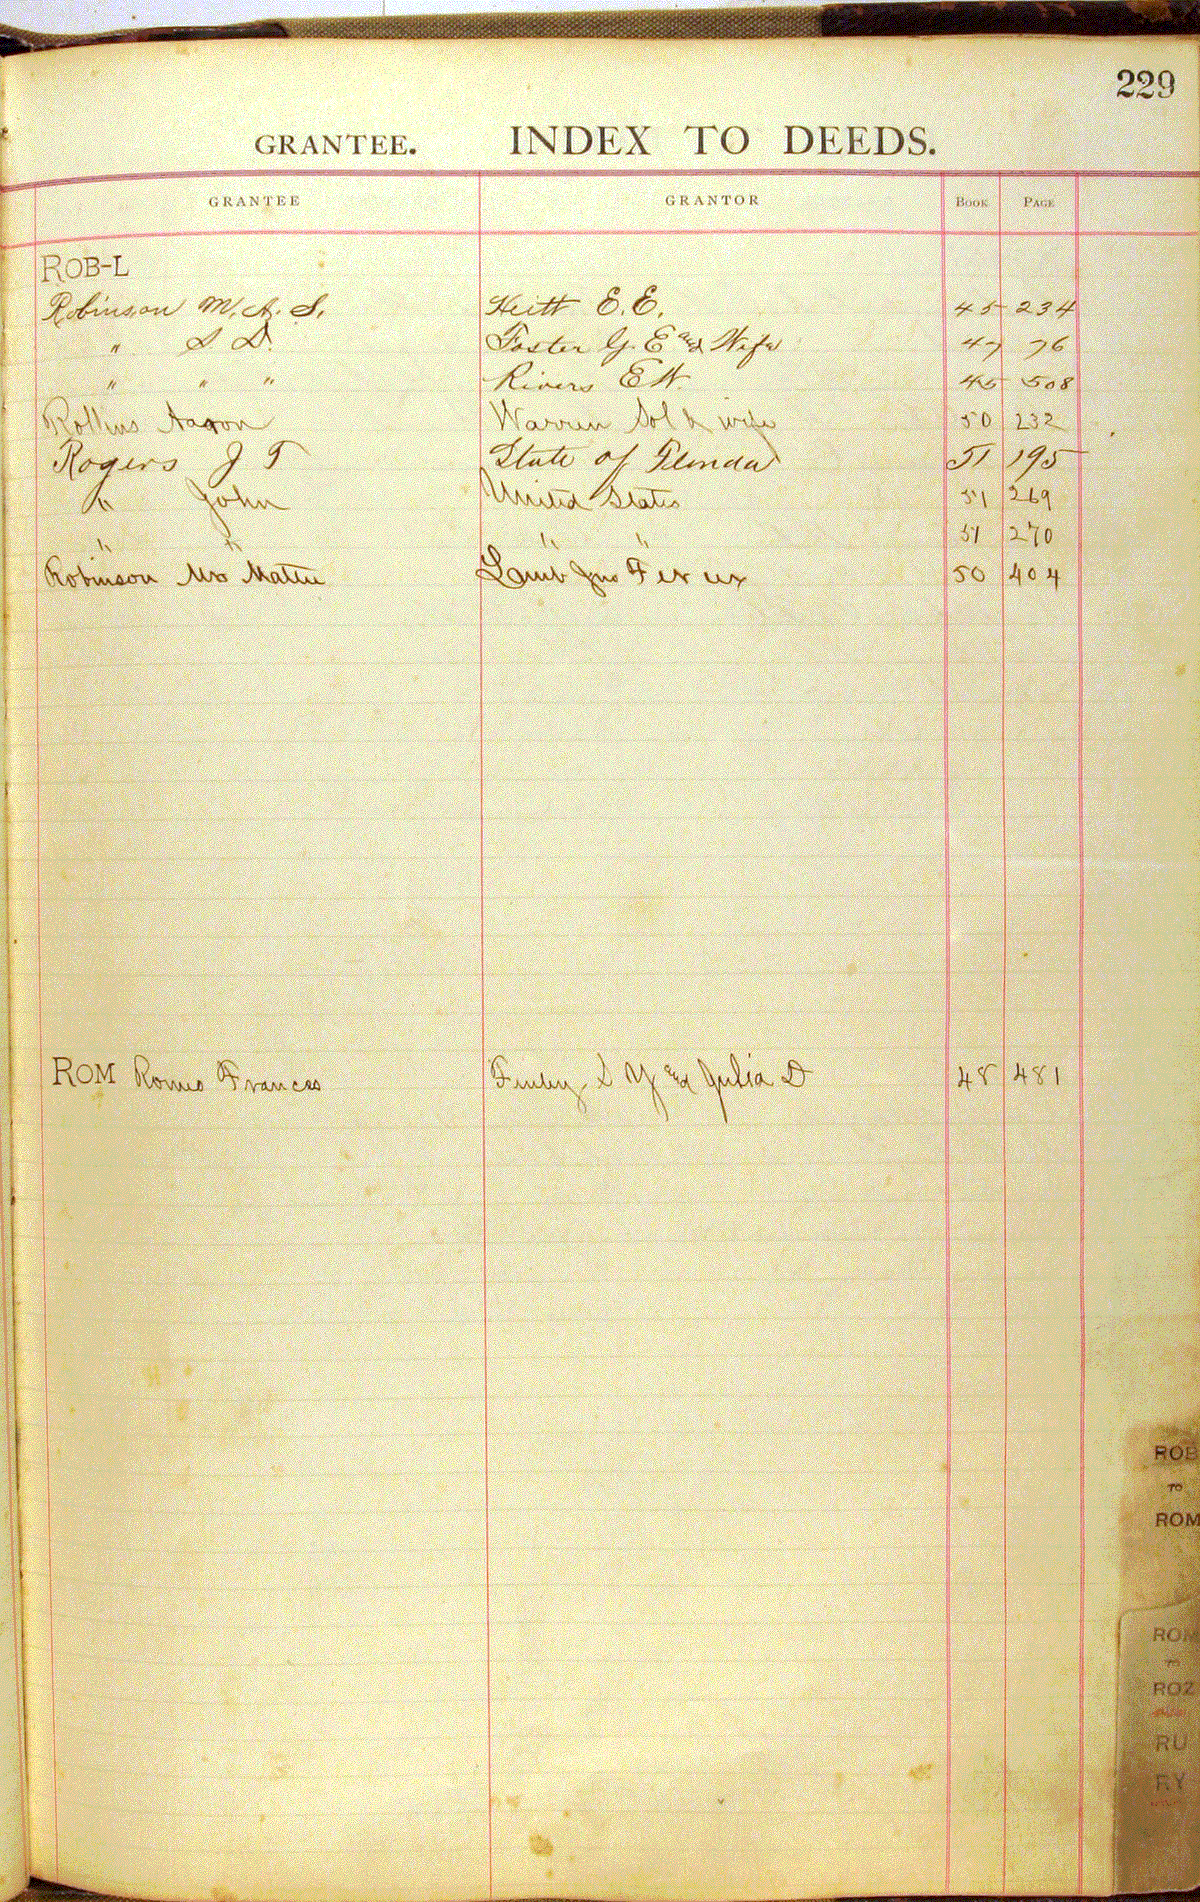 229
GRANTEE. INDEX TO DEEDS.
GRANTEE GRANTOR BOOK PAGE
ROB-L
Robinson M. A. S. E. E. 45 234
" S D. Foster G. E and Wife 47 76
" " " Rivers E W. 45 508
Rollins Aaron Warren Sol & wife 50 232
Rogers J T State of Florida 51 195
" John United States 51 269
" " " " 51 270
Robinson Mrs Mattie Lamb Jno F et ux 50 404
ROM Romeo Frances Finley S Y and Julia D 48 481
ROB
TO
ROM
ROM
TO
ROZ
RU
RY